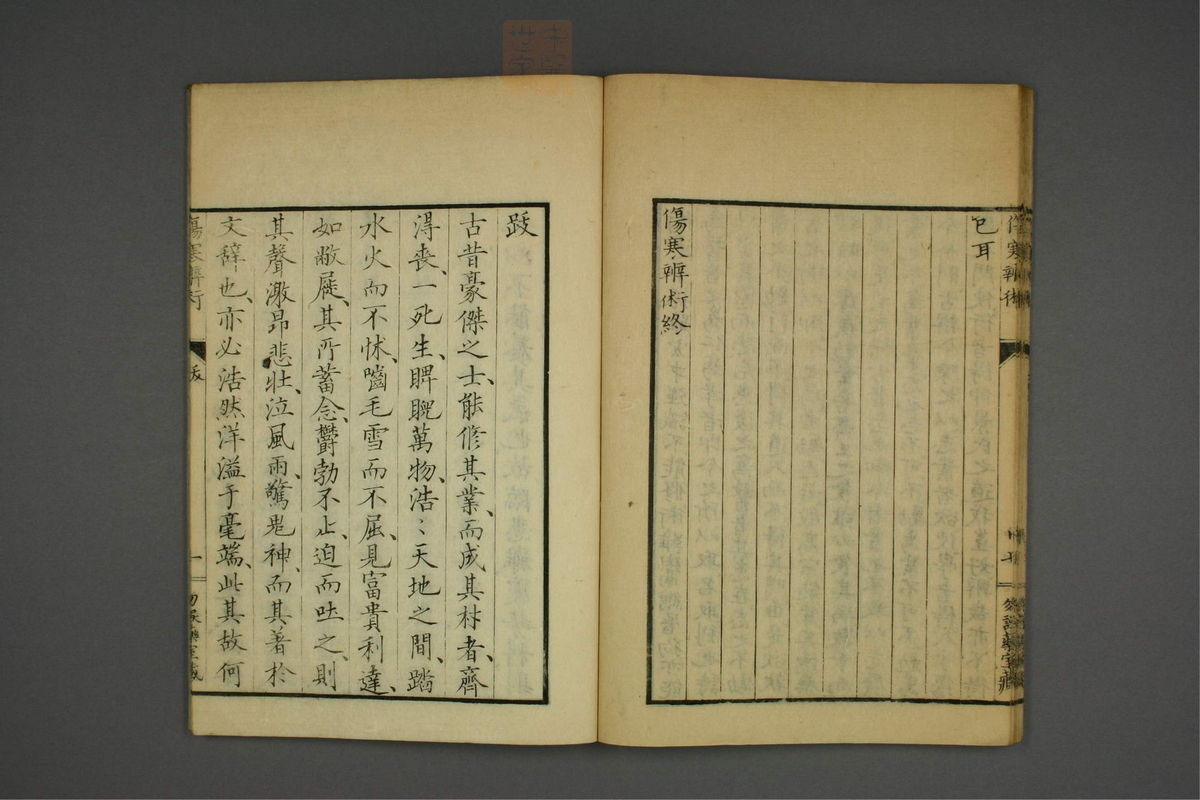 傷寒辨術
已耳
傷寒辨術終
跋
古昔豪傑之士、能修其業、而成其材者、齊
得喪、一死生、睥睨萬物、浩〻天地之間、踏
水火而不怵、嚙毛雪而不屈、見富貴利達、
如敝屣、其所蓄念、鬱勃不止、迫而吐之、則
其聲激昂悲壯、泣風雨、驚鬼神、而其著於
文辭也、亦必浩然洋溢于毫端、此其故何
傷寒辨術 跋 一 勿誤藥室藏